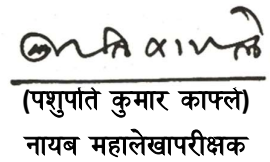 (पशुपति कुमार काफ्ले)
नायब महालेखापरीक्षक